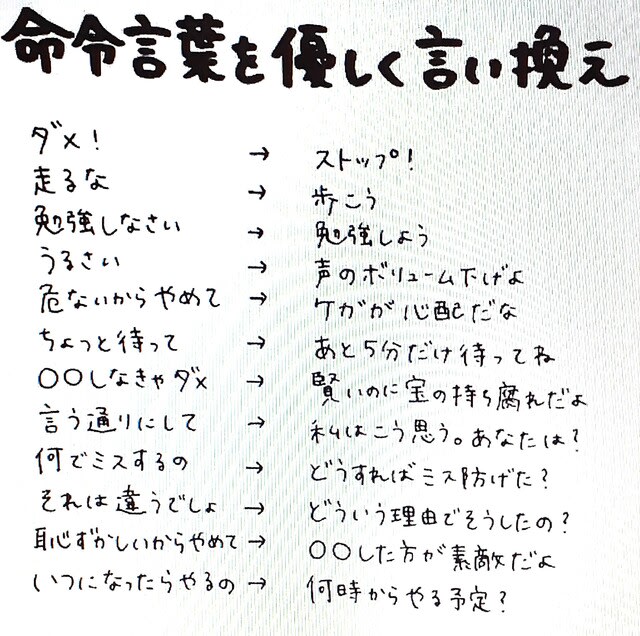 命令言葉を優しく言い換え
ダメ! → ストップ!
走るな → 歩こう
勉強しなさい → 勉強しよう
うるさい → 声のボリューム下げよ
危ないからやめて → ケガが心配だな
ちょっと待って → あと5分だけ待ってね
〇〇しなきゃダメ → 賢いのに宝の持ち腐れだよ
言う通りにして → 私はこう思う。あなたは?
何でミスするの → どうすればミス防げた?
それは違うでしょ → どういう理由でそうしたの?
恥ずかしいからやめて → 〇〇した方が素敵だよ
いつになったらやるの → 何時からやる予定?